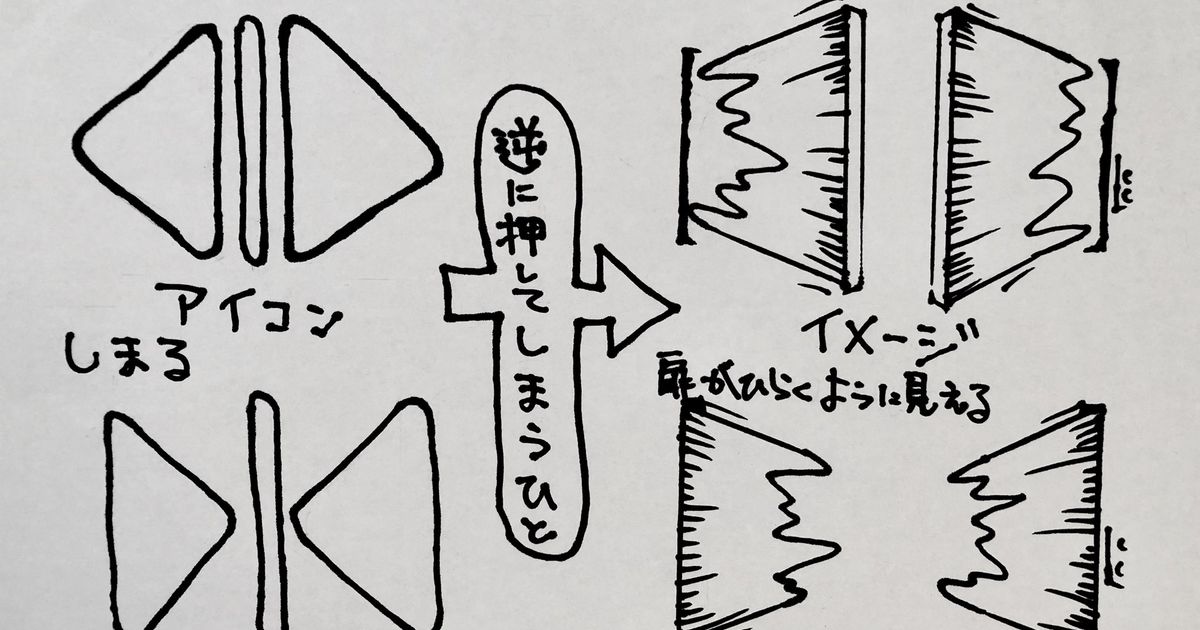 アイコン
しまる
逆に押してしまうひと
イメージ
扉がひらくように見える